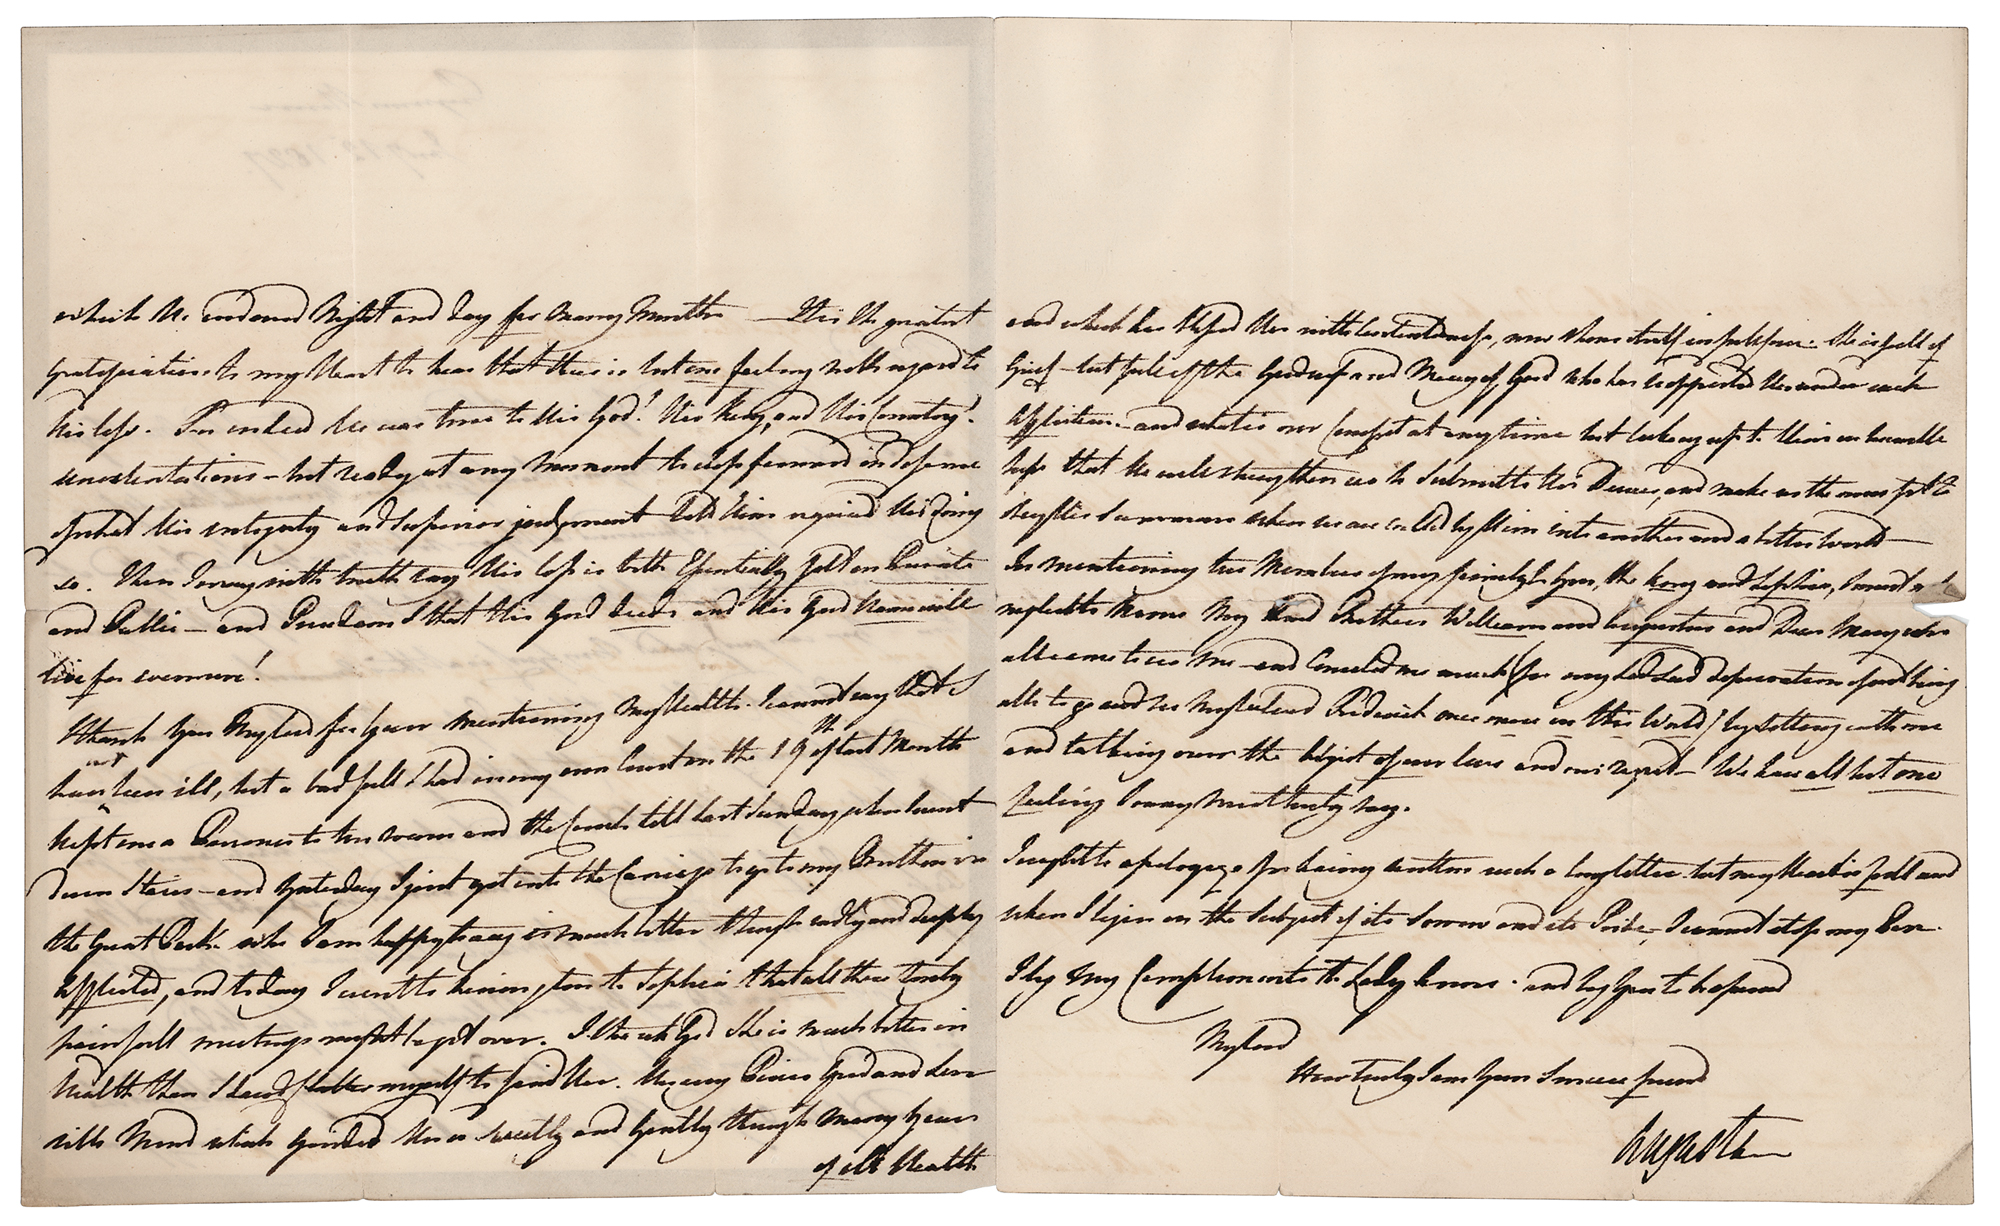 which He endured Night and day for Many Months — It is the greatest
gratification to my Heart to hear that there is but one feeling with regard to
His loss. For indeed He was true to His God! His King, and His Country!
unostentatious – but ready at any moment to step forward in defense
of what His integrity and Superior judgment told Him required His doing
so. Then I may with truth say His loss is both Essentially felt in Private
and Public – and I that His Good deeds and His Good Name will
live for evermore!
I thank You My Lord for Your mentioning My Health. I cannot say that I
have not been ill, but a bad fall I had in my own Court on the 19th of last Month
kept me a Prisoner to my room and the Couch till last Sunday when I went
down Stairs – and Yesterday I just got into the Carriage to go to my Brother in
the Great Park who I am happy to say is much better though sadly and deeply
afflicted, and to day I went to Kensington to Sophia that all these truly
painfull meetings might be got over. I thank God She is much better in
Health than I had myself to find Her. Her very Pious Good and Sen-
sible Mind which guided Her so sweetly and gently through many Years
of ill Health
and which has blessed Her with contentedness, now shows itself in full force. She is full of
Grief – but full of the Goodness and Mercy of God who has supported Her under such
Affliction – and what is our Comfort at any time but looking up to Him in humble
hope that He will strengthen us to Submit to His Decree, and make us the more fit to
when we are called by Him into another and a better World –
In mentioning two Members of my family to You, the King and Sophia, I must not
neglect to Name My Kind Brothers William and Augustus and Dear Mary who
all came to see Me – and Consoled me much (for my sad deprivation of not being
able to go and see My beloved Frederick once more in this World) by sitting with me
and talking over the object of our love and our regret – We have all but one
feeling I may most truly say.
I ought to apologize for having written such a long letter but my Heart is full and
when I begin on the Subject of its Sorrow and its Pride, I cannot stop my Pen.
I beg My Compliments to Lady Knox. and beg You to be assured
My Lord
How truly I am Your Sincere friend
Augusta